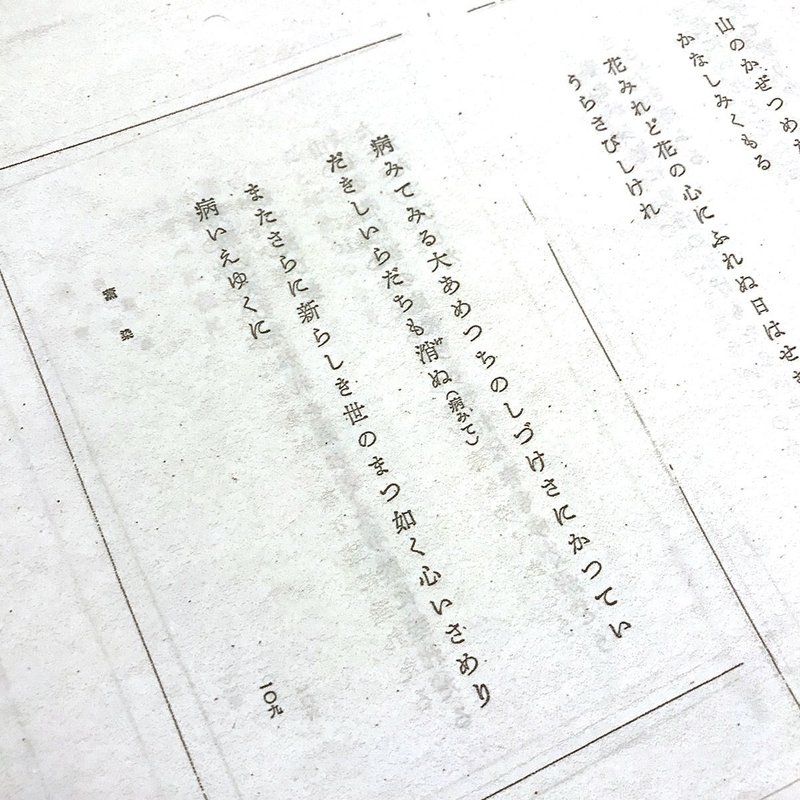 山のかぜつめた
かなしみくもる
花みれど花の心にふれぬ日はせき
うらさびしけれ
病みてみる大あめつちのしづけさにかつてい
だきしいらだちも消ぬ(病みて)
またさらに新らしき世のまつ如く心いさめり
病いえゆくに
一〇九